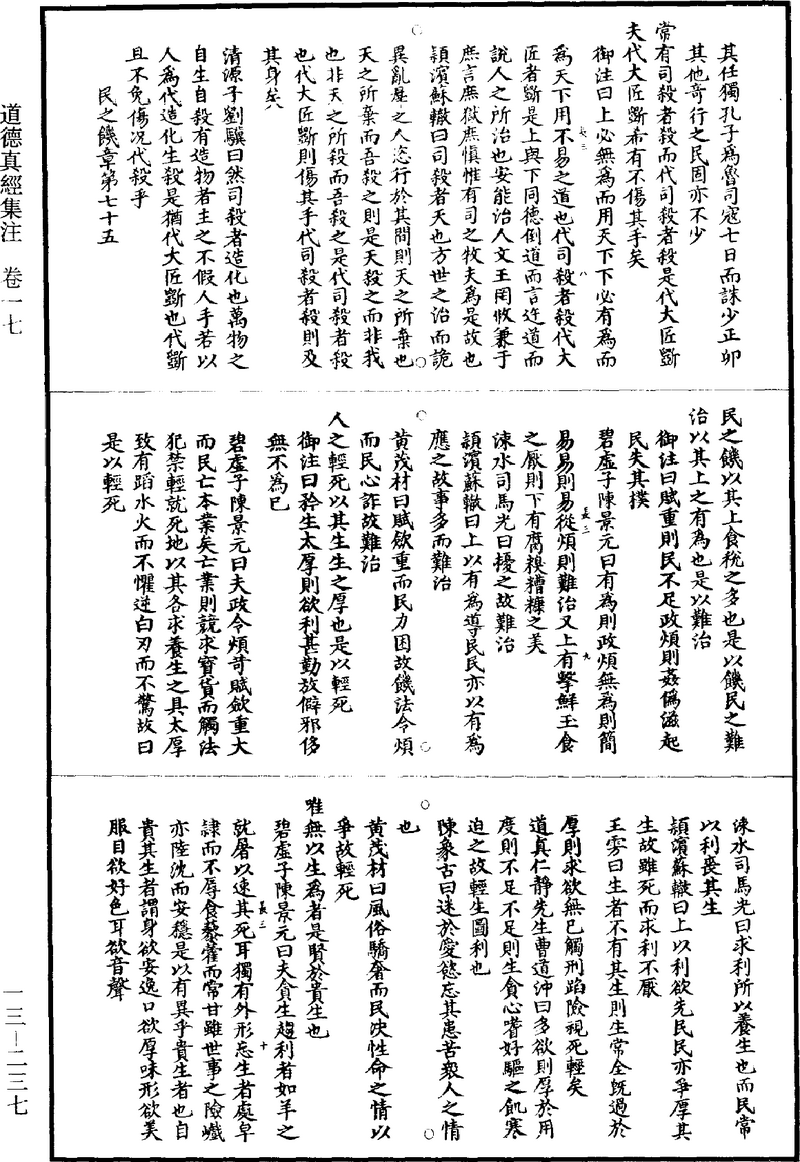 其任獨孔子為魯司寇七日而誅少正卯
其他奇行之民固亦不少
常有司殺者殺而代司殺者殺是代大匠斲
夫代大匠斲希有不傷其手矣
御注曰上必無為而用天下下必有為而
為天下用不易之道也代司殺者殺代大
匠者斲是上與下同德倒道而言迕道而
說人之所治也安能治人文王罔攸兼于
庶言庶獄庶慎惟有司之牧夫為是故也
頴濱蘇轍曰司殺者天也方世之治而詭
異亂羣之人恣行於其間則天之所棄也
天之所棄而吾殺之則是天殺之而非我
也非天之所殺而吾殺之是代司殺者殺
也代大匠斲則傷其手代司殺者殺則及
其身矣
清源子劉驥曰然司殺者造化也萬物之
自生自殺有造物者主之不假人手若以
人為代造化生殺是猶代大匠斲也代斲
且不免傷況代殺乎
民之饑章第七十五
民之饑以其上食稅之多也是以饑民之難
治以其上之有為也是以難治
御注曰賦重則民不足政煩則姦偽滋起
民失其樸
碧虛子陳景元曰有為則政煩無為則簡
易易則易從煩則難治又上有擊鮮玉食
之厭則下有腐糗糟糠之美
涑水司馬光曰擾之故難治
頴濱蘇轍曰上以有為導民民亦以有為
應之故事多而難治
黃茂材曰賦斂重而民力困故饑法令煩
而民心詐故難治
人之輕死以其生生之厚也是以輕死
御注曰矜生太厚則欲利甚勤放僻邪侈
無不為已
碧虛子陳景元曰夫政令煩苛賦斂重大
而民亡本業矣亡業則競求寶貨而觸法
犯禁輕就死地以其各求養生之具太厚
致有蹈水火而不懼逆白刃而不驚故曰
是以輕死
涑水司馬光曰求利所以養生也而民常
以利喪其生
頴濱蘇轍曰上以利欲先民民亦爭厚其
生故雖死而求利不厭
王雱曰生者不有其生則生常全既過於
厚則求欲無已觸刑蹈險視死輕矣
道真仁靜先生曹道沖曰多欲則厚於用
度則不足不足則生貪心嗜好驅之飢寒
迫之故輕生圖利也
陳象古曰迷於愛慾忘其患苦衆人之情
也
黃茂材曰風俗驕奢而民決性命之情以
爭故輕死
唯無以生為者是賢於貴生也
碧虛子陳景元曰夫貪生趨利者如羊之
就屠以速其死耳獨有外形忘生者處皁
隷而不辱食藜藿而常甘雖世事之險巇
亦陸沈而安穩是以有異乎貴生者也自
貴其生者謂身欲安逸口欲厚味形欲美
服目欲好色耳欲音聲
長三
八
長三
九
長三
十
道德真經集注 卷一七
一三—二三七